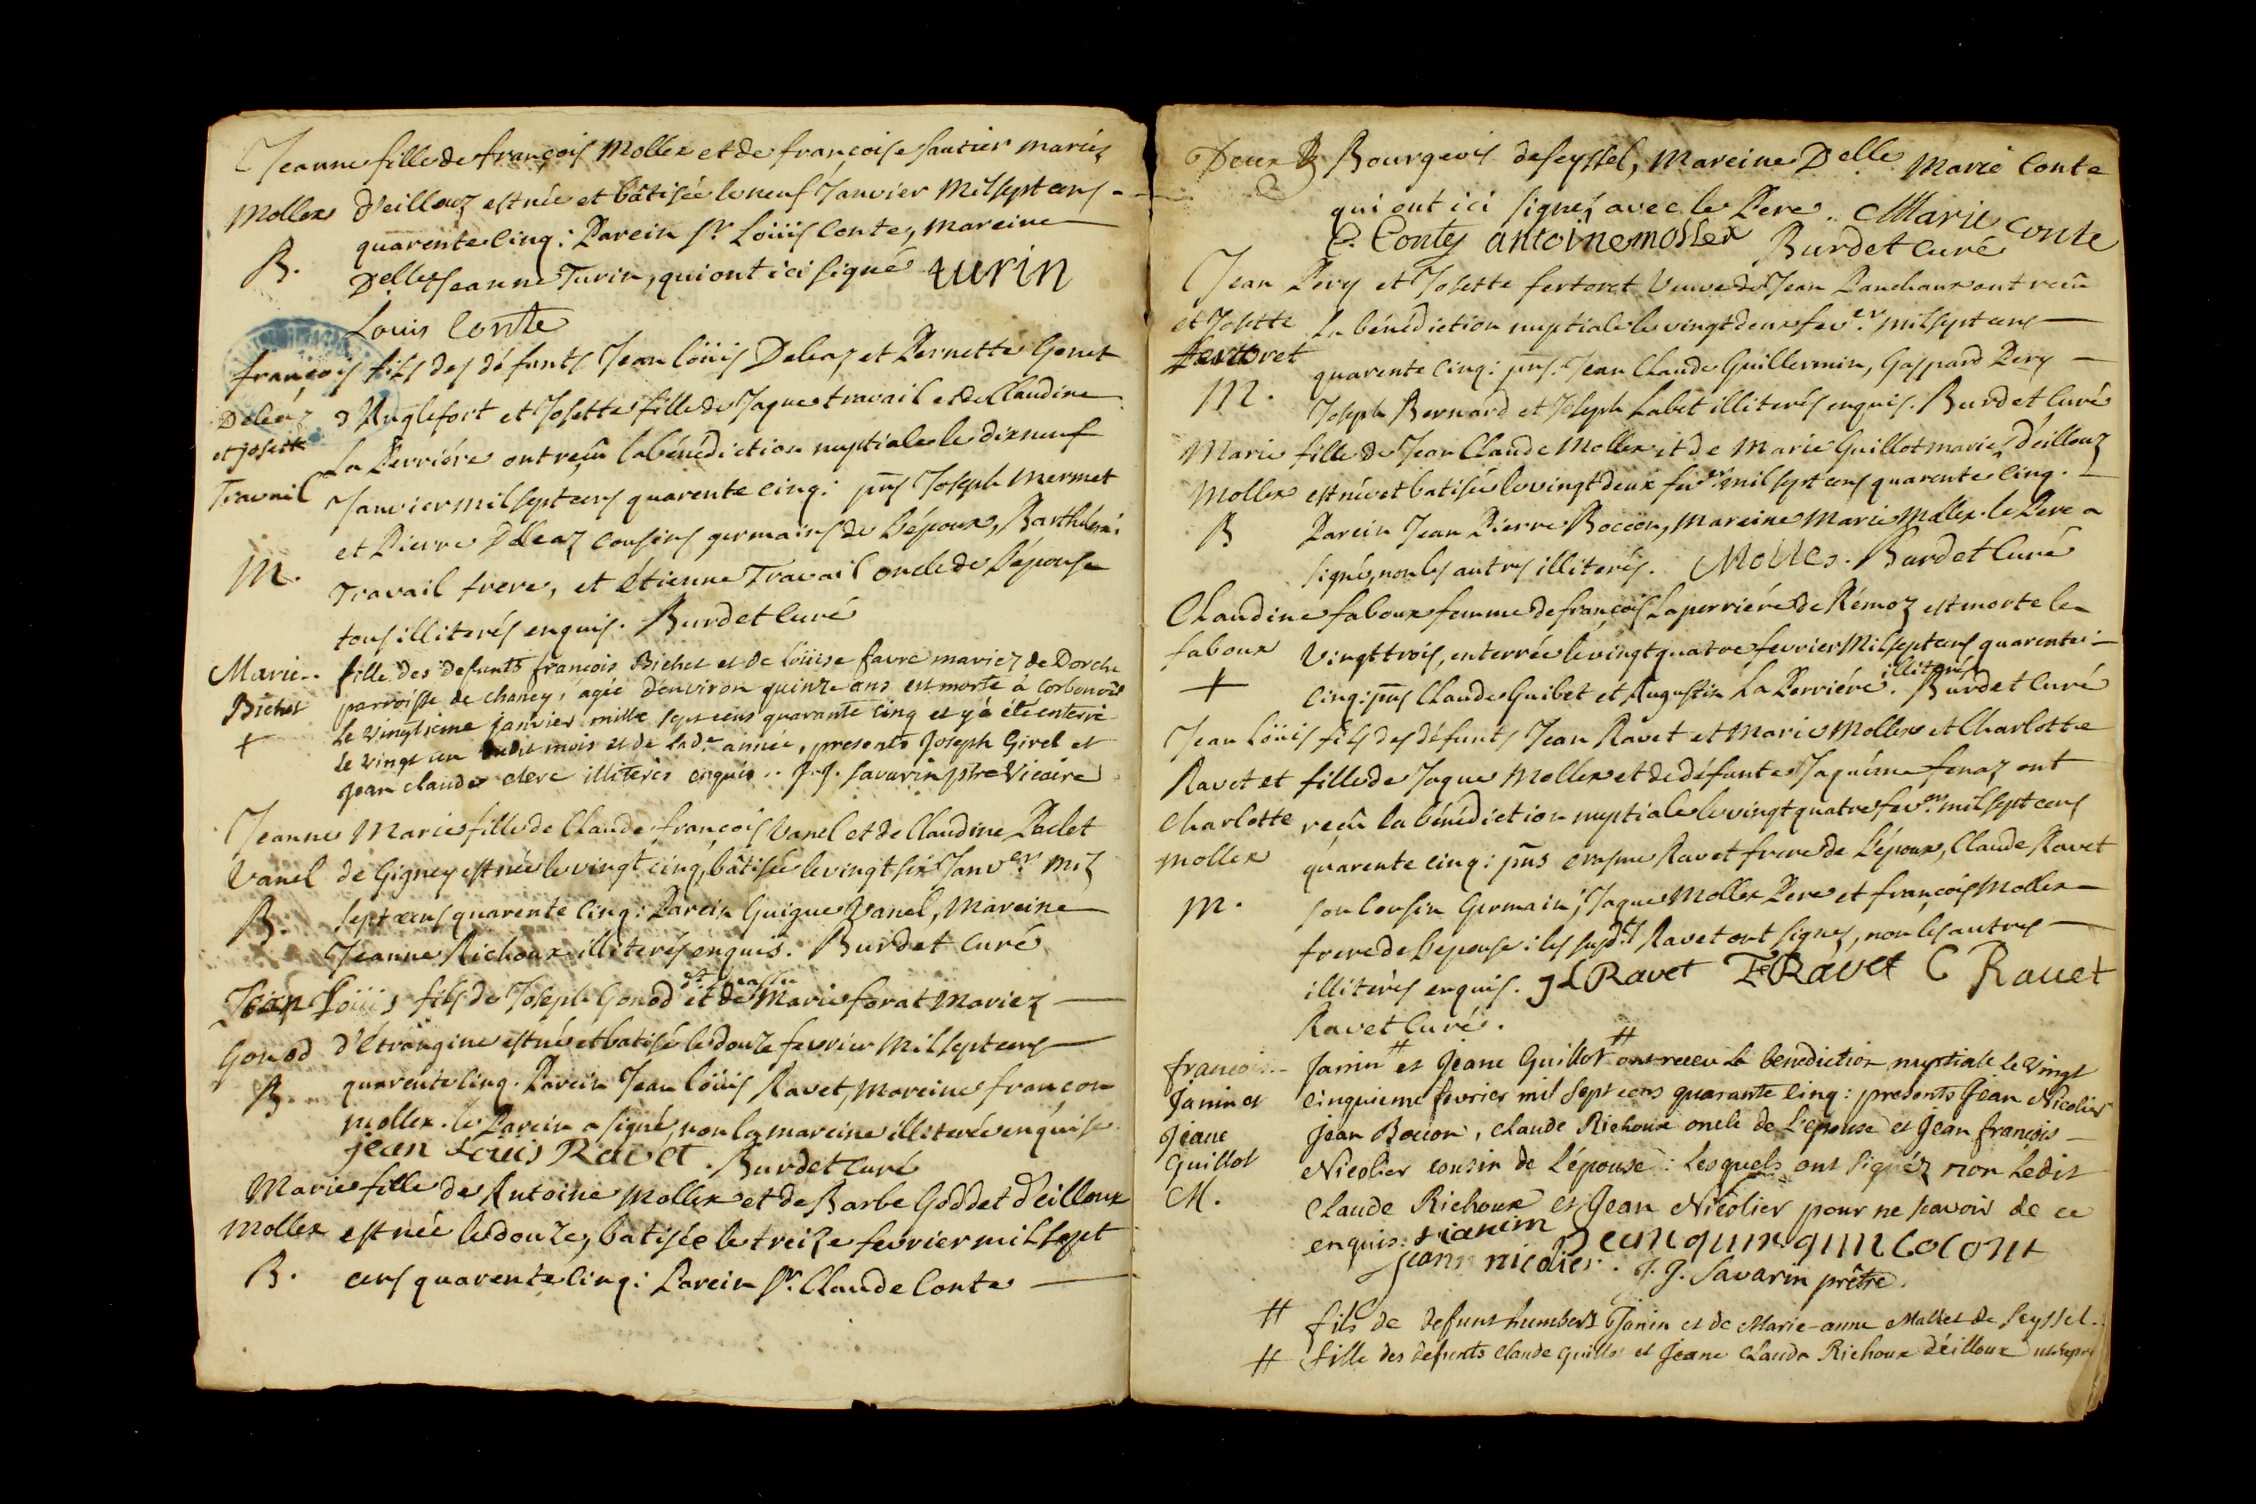 Jeanne fille de françois Mollex et de françoise sautier mariés
Mollex d'eilloux est née et bâtisée le neuf Janvier Mil sept cens
quarente cinq: Parein Sr Loüis Conte, mareine
B. Delle Jeanne Turin, qui ont ici signé turin
Louis Conte
françois fils des défunts Jean loüis Deleaz et Pernette Gonet
Deleaz d'Anglefort et Josette fille de Jaque travail et de Claudine
et josette La Perriére ont reçû la bénédiction nuptiale le dixneuf
Travail Janvier mil sept cens quarente cinq: pns Joseph Mermet
et Pierre Deleaz cousins germains de l'époux, Barthélemi
M. Travail frere, et Etienne Travail oncle de l'épouse
tous illiterés enquis. Burdet Curé
Marie fille des defunts françois Bichet et de loüise favre mariez de Dorche
Bichet parroisse de chaney, agée d'environ quinze ans est morte à Corbonod
+ le vingtieme janvier mille sept cens quarante cinq et y a été enterré
le vingt un dudit mois et de lad.e année, presents Joseph Girel et
Jean claude clerc illiterés enquis. J. J. Savarin ptre Vicaire
Jeanne Marie fille de Claude françois Vanel et de Claudine Paclet
Vanel de Gigney est née le vingt cinq, bâtisée le vingt six Janv.er mil
B. sept cens quarente cinq: Parein Guigue Vanel, Mareine
Jeanne Richoux illiterés enquis. Burdet Curé
Jean Loüis fils de Joseph Gonod et de Marie forat Mariez
Gonod d'Etrangine est né et batisé le douze fevrier Mil sept cens
B. quarente cinq. Parein Jean loüis Ravet, Mareine françon
mollex. le Parein a signé, non la mareine illiterée enquise
jean Louis Ravet. Burdet Curé
Marie fille de Antoine Mollex et de Barbe Goddet d'eilloux
Mollex est née le douze, batisée le treize fevrier mil sept
B. cens quarente cinq: Parein Sr. Claude Conte
Bourgeois de seyssel, Mareine Delle Marie Conte
qui ont ici signés avec le Pere. Marie Conte
C. Conte antoine mollex Burdet Curé
Jean Pery et Josette fertoret Veuve de Jean Panchaux ont reçû
et Josette la bénédiction nuptiale le vingt deux fev.er mil sept cens
fertoret quarente cinq: pns. Jean Claude Guillermin, Gaspard Pery
M. Joseph Bernard et Joseph Labet illiterés enquis. Burdet Curé
Marie fille de Jean Claude Mollex et de Marie Guillot mariez d'eilloux
Mollex est née et batisée le vingt deux fev.er mil sept cens quarente cinq.
B Parein Jean Pierre Boccon, Mareine Marie Mollex. le Pere a
signé, non les autres illiterés. Molles. Burdet Curé
Claudine faboux femme de françois Laperriére de Rémoz est morte le
faboux vingt trois, enterrée le vingt quatre fevrier Mil sept cens quarente
illiterés
+ cinq: pns Claude Guibet et Augustin La Perriére. Burdet Curé
Jean loüis fils des défunts Jean Ravet et Marie Mollex et Charlotte
Ravet et fille de Jaque Mollex et de défunte Jaquéme fenaz ont
Charlotte reçû la bénédiction nuptiale le vingt quatre fev.er mil sept cens
mollex quarente cinq: pns erasme Ravet frere de l'époux, Claude Ravet
M. son Cousin Germain, Jaque Mollex Pere et françois Mollex
frere de l'epouse: les susdts Ravet ont signés, non les autres
illiterés enquis. J L Ravet E Ravet C Ravet
Ravet Curé.
francois Janin # et Jeane Guillot # ont receu la benediction nuptiale le Vingt
Janin et cinquieme fevrier mil sept cens quarante cinq: presents Jean Nicolier
Jeane Jean Bocion, claude Richoux oncle de l'epouse et Jean francois
Guillot Nicolier cousin de l'épouse: Lesquels ont signéz non Ledit
M. Claude Richoux et Jean Nicolier pour ne scavoir de ce
enquis: f janim
Jean nicolier. J. J. Savarin prêtre.
# fils de defunt humbert Janin et de Marie-anne Mallet de Seyssel.
# fille des defunts Claude guillot et Jeane Claude Richoux d'éilloux